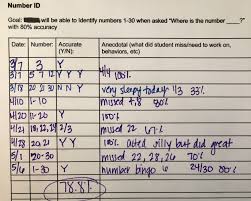 Number ID
Goal: will be able to Identify numbers 1-30 when asked "Where is the number ____?"
with 80% accuracy
Date: Number: Accurate (Y/N): Anecdotal (what did student miss/need to work on, behaviors, etc)
3/7 3 Y
3/7 5 7 12 Y Y Y 4/4 100%
3/18 20 21 30 N N Y very sleepy today 1/3 33%
4/10 1-10 missed 4,8 80%
4/20 11-20 Y 100%
4/21 18,22,24 2/3 missed 22 67%
4/28 20,21 Y Y 100% Acted silly but did great
5/1 20-30 missed 22, 28, 26 70%
5/6 1-30 Y number bingo 24/30 80%
78.8%